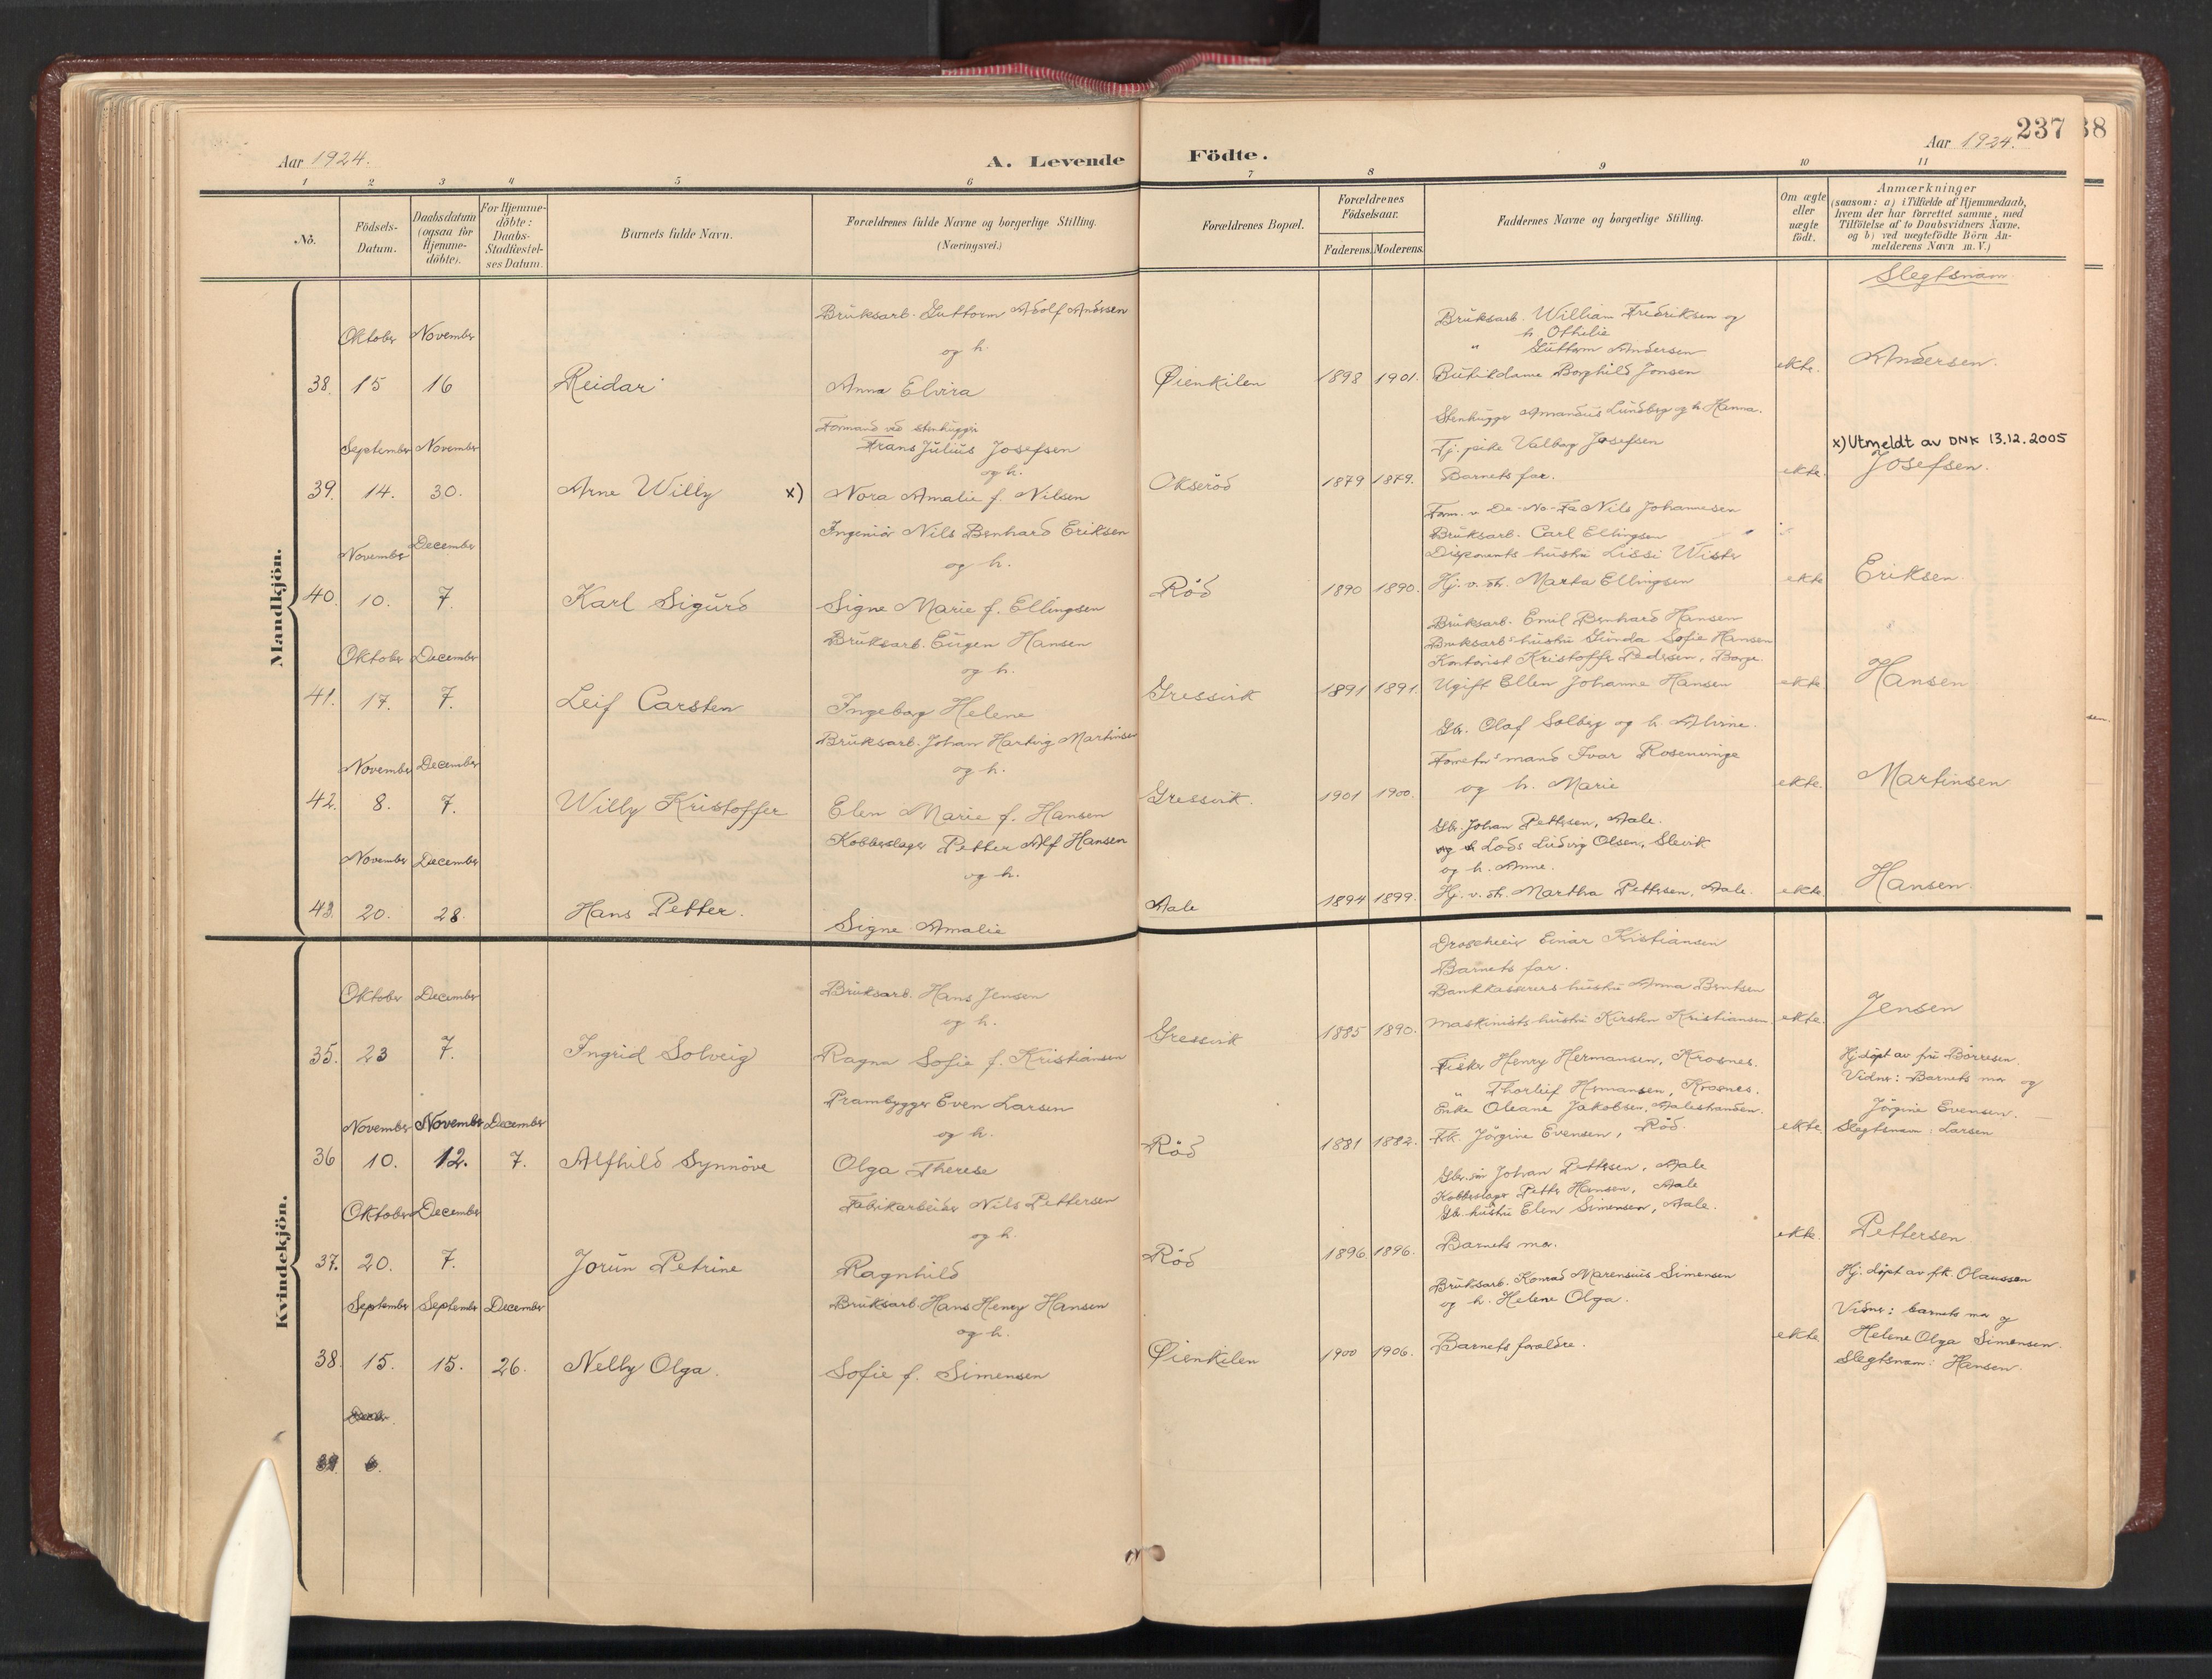 Aar 1924.
A. Levende Födte.
Aar 1924.
237
38
1 2 3 4 5 6 7 8 9 10 11
No.
Födsels-Datum.
Daabsdatum (ogsaa for Hjemme-döbte).
For Hjemme-döbte: Daabs-Stadfæstel-ses Datum.
Barnets fulde Navn.
Forældrenes fulde Navne og borgerlige Stilling.
(Næringsvei.)
Forældrenes Bopæl.
Forældrenes Födselsaar.
Faderens. Moderens.
Faddernes Navne og borgerlige Stilling.
Om ægte eller uægte födt.
Anmærkninger
(saasom: a) i Tilfælde af Hjemmedaab, hvem der har forrettet samme, med Tilföielse af to Daabsvidners Navne, og b) ved uægtefödte Börn An-melderens Navn m. V.)
Slegtsnavn
Mandkjön.
Oktober November
38 15 16 Reidar
Bruksarb. Guttorm Adolf Andersen
og h.
Anna Elvira
Øienkilen 1898 1901.
Bruksarb. William Fredriksen og
h. Othilie
" Guttorm Andersen
Butikdame Borghild Jonsen
ekte. Andersen.
September November
39. 14. 30. Arne Willy x)
Formand ved stenhuggeri
Frans Julius Josefsen
og h.
Nora Amalie f. Nilsen
Okseröd 1879 1879.
Stenhugger Amandus Lundberg og h. Hanna.
Tj. pike Valborg Josefsen
Barnets far.
ekte.
x) Utmeldt av DNK 13.12.2005
Josefsen.
November December
40. 10. 7. Karl Sigurd
Ingeniør Nils Bernhard Eriksen
og h.
Signe Marie f. Ellingsen
Röd 1890 1890.
Form. v. De-No-Fa Nils Johannesen
Bruksarb. Carl Ellingsen
Disponents hustru Lissi Wister
Hj. v. dtr. Marta Ellingsen
ekte Eriksen
Oktober December
41. 17. 7. Leif Carsten
Bruksarb. Eugen Hansen
og h.
Ingeborg Helene
Gressvik 1891 1891.
Bruksarb. Emil Bernhard Hansen
Bruksarb's hustru Gunda Sofie Hansen
Kontorist Kristoffer Pedersen, Borge.
Ugift Ellen Johanne Hansen
ekte Hansen
November December
42. 8. 7. Willy Kristoffer
Bruksarb. Johan Hartvig Martinsen
og h.
Elen Marie f. Hansen
Gressvik. 1901 1900.
Gbr. Olaf Solberg og h. Alvine.
Ivar Rosenvinge
og h. Marie
ekte. Martinsen
November December
43. 20. 28. Hans Petter.
Kobberslager Petter Alf Hansen
og h.
Signe Amalie
Aale 1894 1899.
Gbr. Johan Pettersen, Aale.
Lods Ludvig Olsen, Slevik
og h. Anne.
Hj. v. dtr. Martha Pettersen, Aale.
ekte. Hansen.
Kvindekjön.
Oktober December
35. 23 7. Ingrid Solveig
Bruksarb. Hans Jensen
og h.
Ragna Sofie f. Kristiansen
Gressvik 1885 1890.
Droscheeier Einar Kristiansen
Barnets far.
Bankkasserers hustru Anna Berntsen
Maskinists hustru Kirsten Kristiansen
ekte. Jensen
November November December
36 10. 12. 7. Alfhild Synnöve
Prambygger Even Larsen
og h.
Olga Therese
Röd 1881 1882.
Fisker Henry Hermansen, Krosnes.
" Thorleif Hermansen, Krosnes.
Enke Oleane Jakobsen, Aalestranden.
Frk. Jörgine Evensen, Röd.
ekte
Hj. döpt av fru Börresen.
Vidner: Barnets mor og
Jörgine Evensen.
Slegtsnavn: Larsen
Oktober December
37. 20. 7. Jorun Petrine
Fabrikarbeider Nils Pettersen
og h.
Ragnhild
Röd 1896 1896.
Johan Pettersen, Aale
Kobberslager Petter Hansen, Aale
Gbr. hustru Elen Simensen, Aale.
Barnets mor.
ekte. Pettersen
September September December
38. 15. 15. 26. Nelly Olga.
Bruksarb. Hans Henry Hansen
og h.
Sofie f. Simensen
Øienkilen 1900 1906.
Bruksarb. Konrad Marensius Simensen
og h. Helene Olga.
Barnets foreldre.
ekte
Hj. döpt av frk. Olaussen
Vidner: barnets mor og
Helene Olga Simensen.
Slegtsnavn: Hansen.